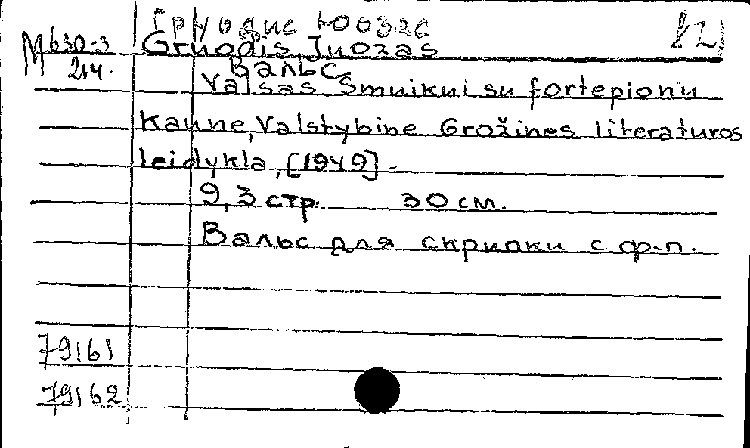 Груодис Юозас [2]
М 630-3 Gruodis Juozas
214. Вальс
Valsas Smuikui su fortepionu
Kaune, Valstybine Grožines literaturos
leidykla, [1949] -
9,3 стр. 30 см.
Вальс для скрипки с ф-п.
79161
79162